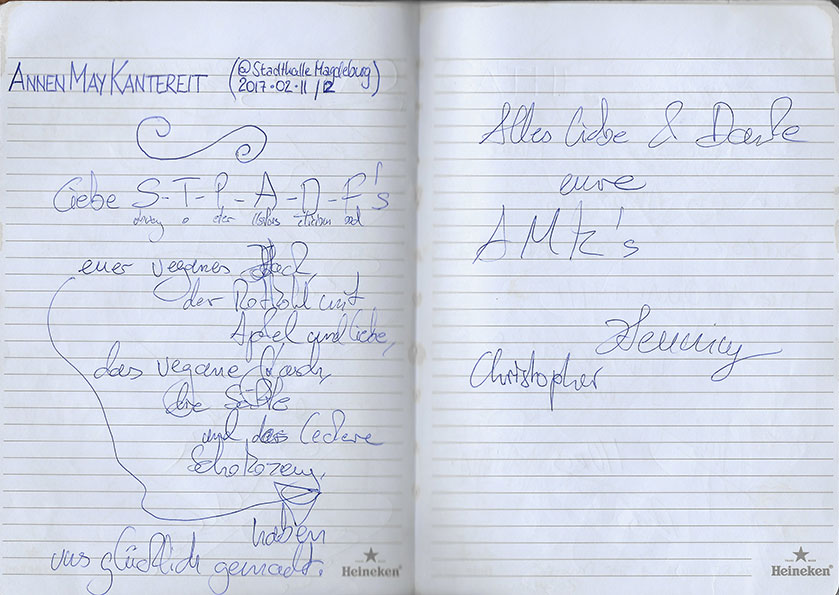 ANNENMAYKANTEREIT (@Stadthalle Magdeburg)
2017·02·11/12
Liebe S-T-P-A-D-F's
o der und
euer veganes Hack,
der Rotkohl mit
Apfel und Liebe,
das vegane
die Soße
und das leckere
Schokozeug,
haben
uns glücklich gemacht.
Heineken
Alles Liebe & Danke
eure
AMK's
Henning
Christopher
Heineken